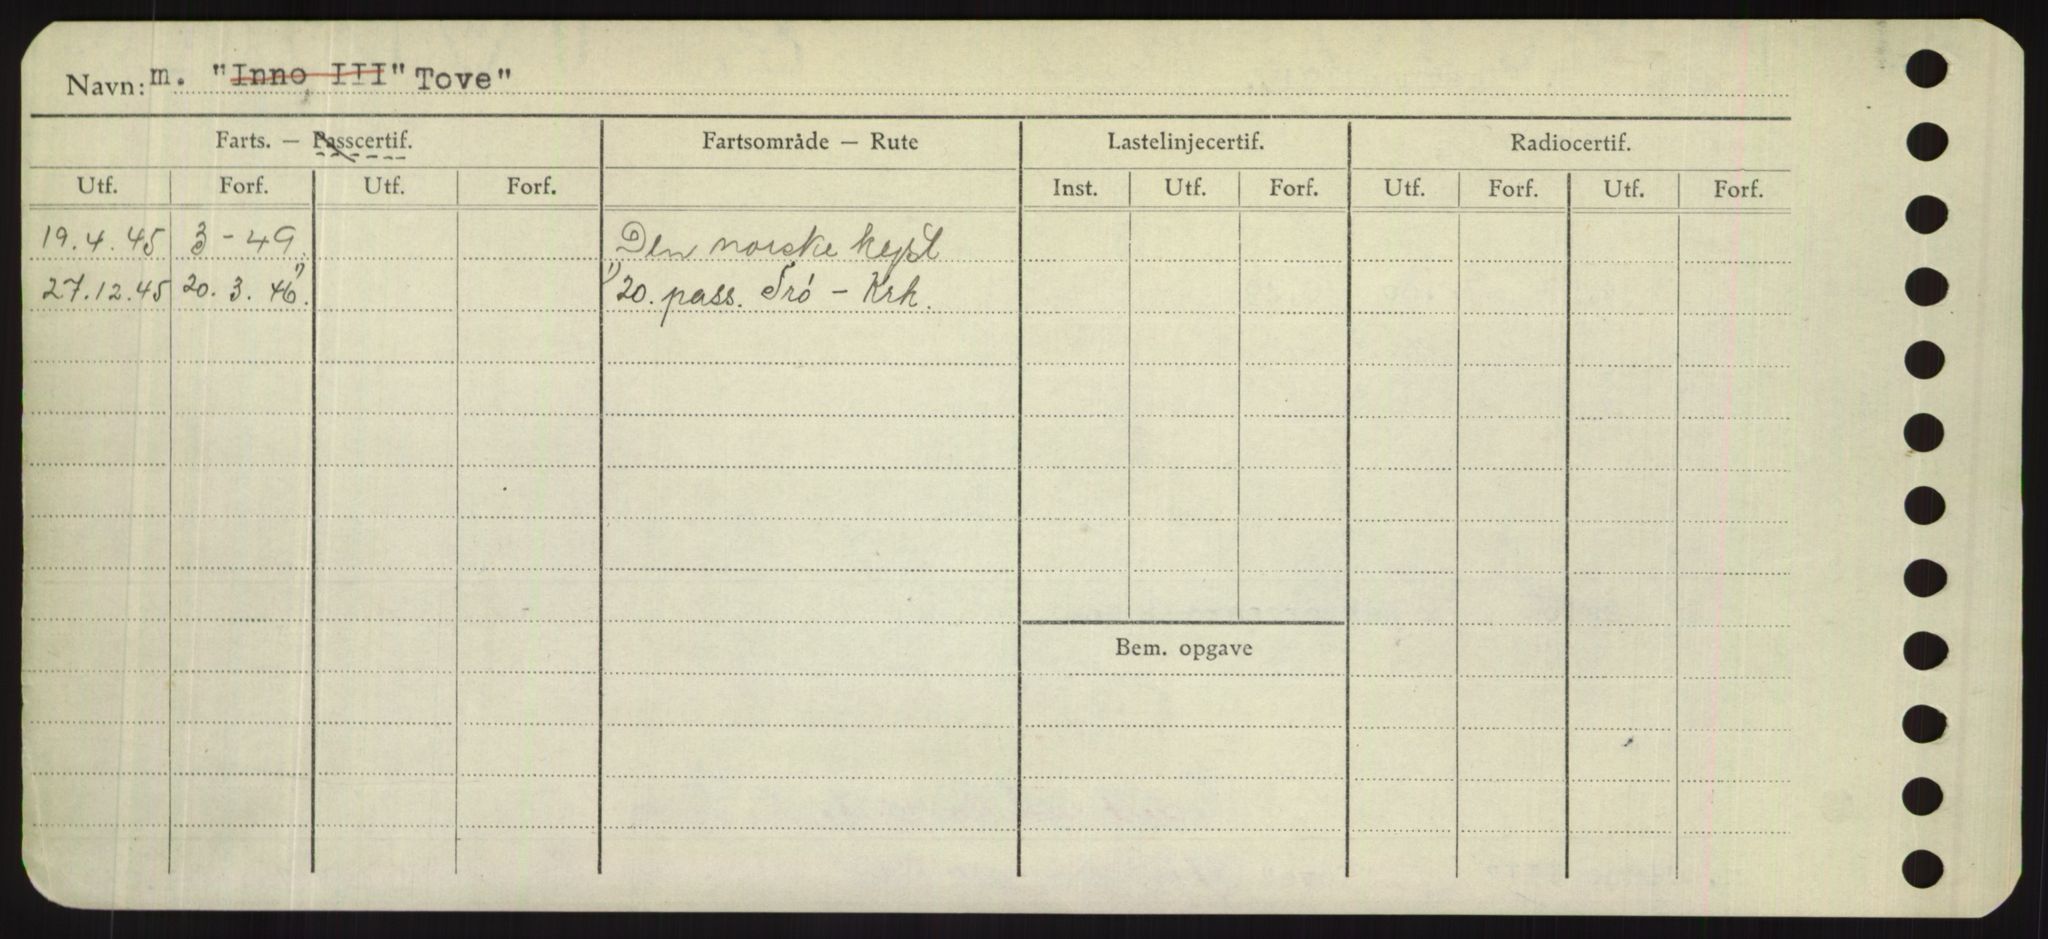 Navn: m. "Inno III" Tove"
Farts. — Passcertif. Fartsområde — Rute Lastelinjecertif. Radiocertif.
Utf. Forf. Utf. Forf. Inst. Utf. Forf. Utf. Forf. Utf. Forf.
19.4.45 3-49. Den norske kyst
27.12.45 20.3.46. 1) 1) 20. pass. Trö - Krh.
Bem. opgave